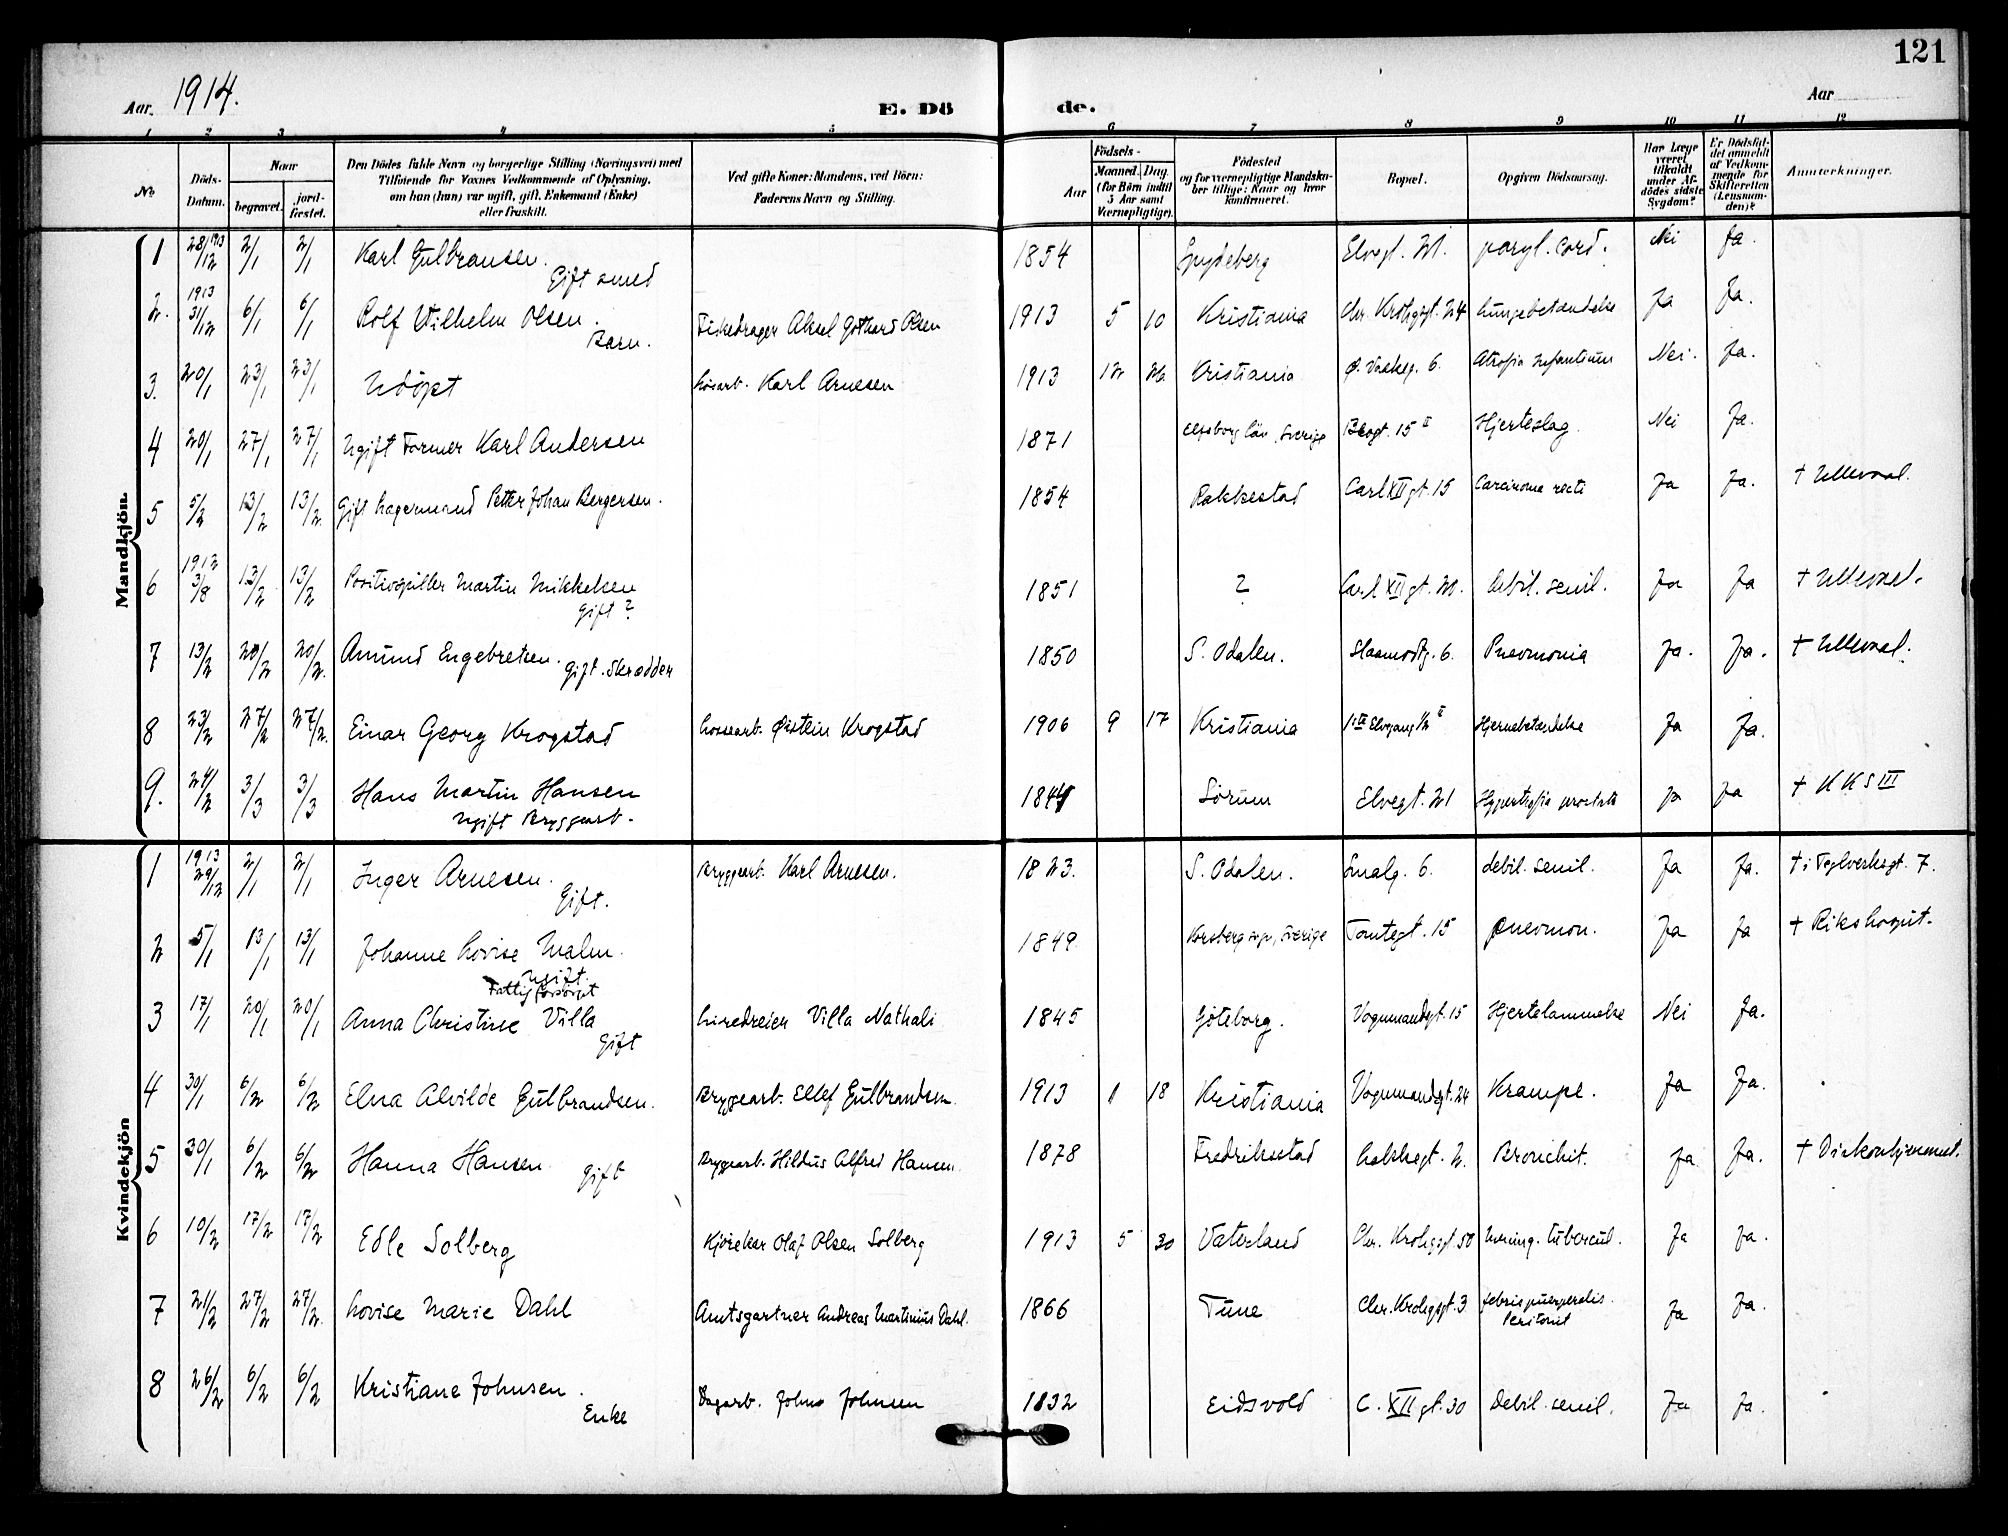 121
Aar 1914.
E. Döde.
Aar
1 2 3 4 5 6 7 8 9 10 11 12
No
Döds-Datum.
Naar
begravet.
jordfæstet.
Den Dödes fulde Navn og borgerlige Stilling (Næringsvei) med Tilföiende for Voxnes Vedkommende af Oplysning, om han (hun) var ugift, gift, Enkemand (Enke) eller fraskilt.
Ved gifte Koner: Mandens, ved Börn: Faderens Navn og Stilling.
Födsels-
Aar
Maaned. Dag.
(for Börn indtil 5 Aar samt Værnepligtige).
Födested og for værnepligtige Mandskaber tillige: Naar og hvor konfirmeret.
Bopæl.
Opgiven Dödsaarsag.
Har Læge været tilkaldt under Afdödes sidste Sygdom?
Er Dödsfaldet anmeldt af Vedkommende for Skifteretten (Lensmanden)?
Anmærkninger.
Mandkjön.
1 28/12 1913 2/1 2/1 Karl Gulbransen. Gift smed 1854 Spydeberg Elvegt. 21. paryl. cord. Nei Ja.
2. 1913 31/12 6/1 6/1 Rolf Vilhelm Olsen. Barn. Fiskedrager Aksel Gothard Olsen 1913 5 10 Kristiania Chr. Krohgsgt. 24 Lungebetændelse Ja Ja.
3. 20/1 23/1 23/1 Udöpt Lösarb. Karl Arnesen 1913 12 26 Kristiania Ø. Vaskeg. 6. Atrofia infantium Nei. Ja.
4 20/1 27/1 27/1 Ugift Former Karl Andersen 1871 Elfsborg län, Sverige 15 II Hjerteslag. Nei Ja.
5 5/2 13/2 13/2. Gift Lagermand Petter Johan Bergersen. 1854 Rakkestad Carl XII gt. 15 Carcinoma recti Ja Ja. † Ullevaal.
6 1912 3/8 13/2 13/2 Positivspiller Martin Mikkelsen Gift? 1851 ? Carl XII gt. 21. Debil. senil. Ja Ja † Ullevaal.
7 13/2 20/2 20/2. Amund Engebretsen. Gift. Skrædder 1850 S. Odalen. 6. Pneumonia Ja. Ja. † Ullevaal.
8 23/2 27/2 27/2. Einar Georg Krogstad Lossearb. Øistein Krogstad 1906 9 17 Kristiania Hjernebetændelse Ja Ja.
9. 24/2 3/3 3/3 Hans Martin Hansen Ugift Bryggearb. 1844 Sörum Elvegt. 21 Hypertrofia prostata Ja Ja † KKS III
Kvindekjön
1 1913 29/12 2/1 2/1 Inger Arnesen. Gift. Bryggearb. Karl Arnesen. 1823. S. Odalen. Smalg. 6. debil. senil. Ja Ja. † i Teglverksgt. 7.
2 5/1 13/1 13/1 Johanne Lovise Malm. Ugift. Fattigforsörget 1849. Sverige Tomtegt. 15 pneumon. Ja Ja † Rikshospit.
3 17/1 20/1 20/1 Anna Christine Villa Gift Liredreier Villa Nathali 1845 Göteborg. Vognmandsgt. 15 Hjertelammelse Nei Ja.
4 30/1 6/2 6/2 Elna Alvilde Gulbrandsen. Bryggearb. Ellef Gulbrandsen. 1913 1 18 Kristiania Vognmandsgt. 24 Krampe. Ja Ja.
5 30/1 6/2 6/2 Hanna Hansen Gift Bryggearb. Hildus Alfred Hansen. 1878 Fredrikstad Lakkegt. 2. Bronchit. Ja Ja. † Diakonhjemmet.
6 10/2 17/2 17/2 Edle Solberg Kjörekar Olaf Olsen Solberg 1913 5 30 Vaterland Chr. Krohgsgt. 50 Mening. tubercul. Ja Ja.
7 21/2 27/2 27/2. Lovise Marie Dahl Amtsgartner Andreas Martinius Dahl. 1866 Tune Chr. Krohgsgt. 3 febris puerperalis. Peritonit Ja Ja.
8 26/2 6/2 6/2 Kristiane Johnsen. Enke Dagarb. Johns Johnsen 1832 Eidsvold C. XII gt. 30 Debil. senil. Ja Ja.